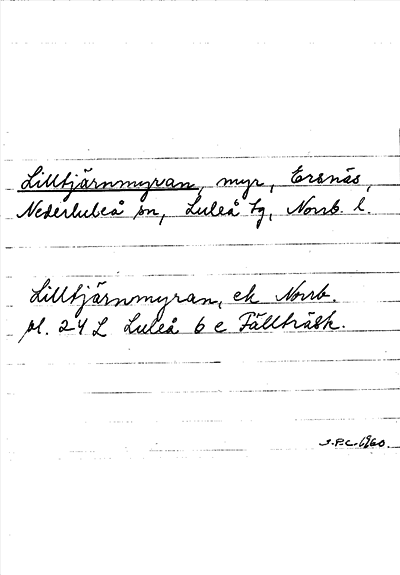 Lilltjärnmyran, myr, Ersnäs,
Nederluleå sn, Luleå tg, Norrb. l.
Lilltjärnmyran, ek Norrb.
bl. 24 L Luleå 6 e Fällträsk.
J.P.C. 1960.